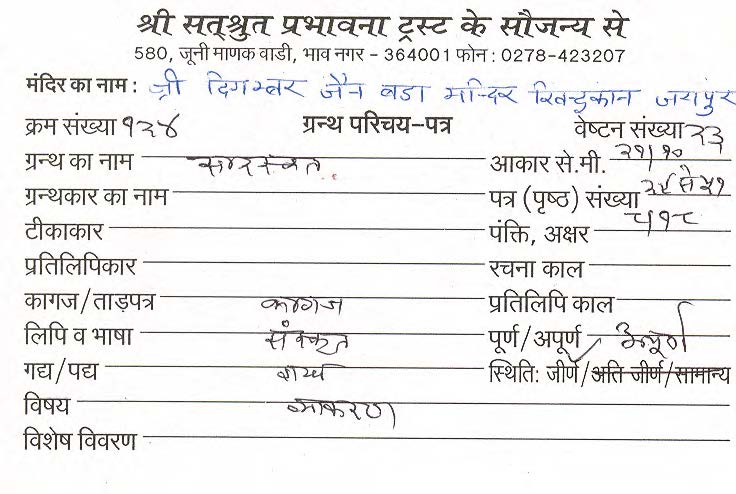 श्री सत्श्रुत प्रभावना ट्रस्ट के सौजन्य से
580, जूनी माणक वाडी, भाव नगर - 364001 फोन : 0278-423207
मंदिर का नाम : श्री दिगम्बर जैन बडा मन्दिर जयपुर
क्रम संख्या १२४ ग्रन्थ परिचय-पत्र वेष्टन संख्या २३
ग्रन्थ का नाम सारस्वत आकार से.मी. २१/१०
ग्रन्थकार का नाम पत्र (पृष्ठ) संख्या से ५१
टीकाकार पंक्ति, अक्षर
प्रतिलिपिकार रचना काल
कागज/ताड़पत्र कागज प्रतिलिपि काल
लिपि व भाषा संस्कृत पूर्ण/अपूर्ण अपूर्ण
गद्य/पद्य स्थिति: जीर्ण/अति जीर्ण/सामान्य
विषय व्याकरण
विशेष विवरण